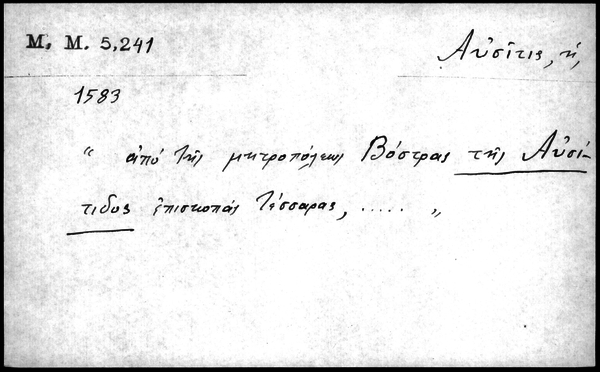 M. M. 5,241
Αὐσῖτις, ἡ,
1583
“ ἀπό τῆς μητροπόλεως Βόστρας τῆς Αὐσί-
τιδος ἐπισκοπάς τέσσαρας, ..... „